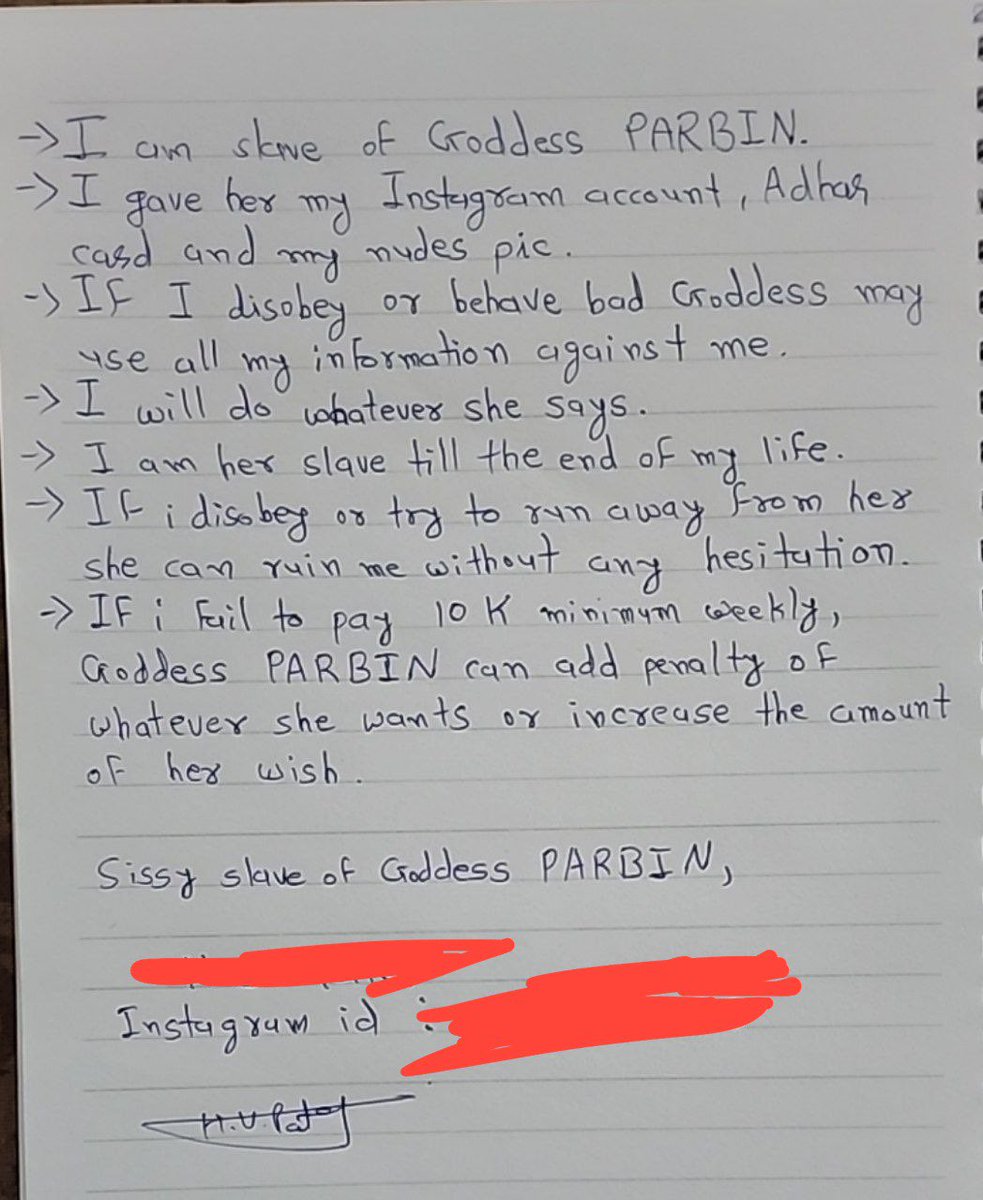 -> I am slave of Goddess PARBIN.
-> I gave her my Instagram account, Adhar
card and my nudes pic.
-> If I disobey or behave bad Goddess may
use all my information against me.
-> I will do whatever she says.
-> I am her slave till the end of my life.
-> If i disobey or try to run away from her
she can ruin me without any hesitation.
-> If i fail to pay 10 K minimum weekly,
Goddess PARBIN can add penalty of
whatever she wants or increase the amount
of her wish.
Sissy slave of Goddess PARBIN,
Instagram id :